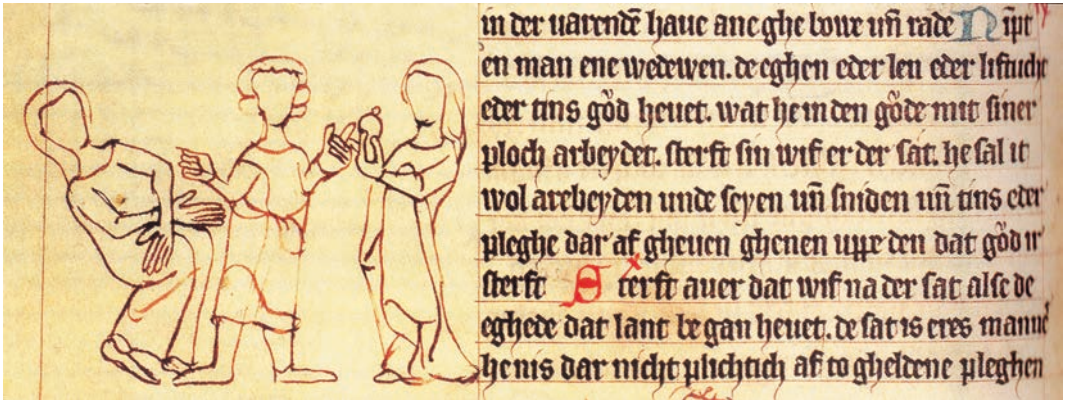 in der varendē haue ane ghe loue uñ rade Nīpt
en man ene wedewen. de eghen eder len eder liftucht
eder tins gůd heuet. wat he in den gůde mit siner
ploch arbeydet. sterft sin wif er der sat. he sal it
wol arebeyden unde seyen uñ sniden uñ tins eder
pleghe dar af gheuen ghenen uppe den dat gůd ir
sterft Sterft auer dat wif na der sat alse de
eghede dat lant be gan heuet. de sat is eres mannes
he nis dar nicht plichtich af to gheldene pleghen